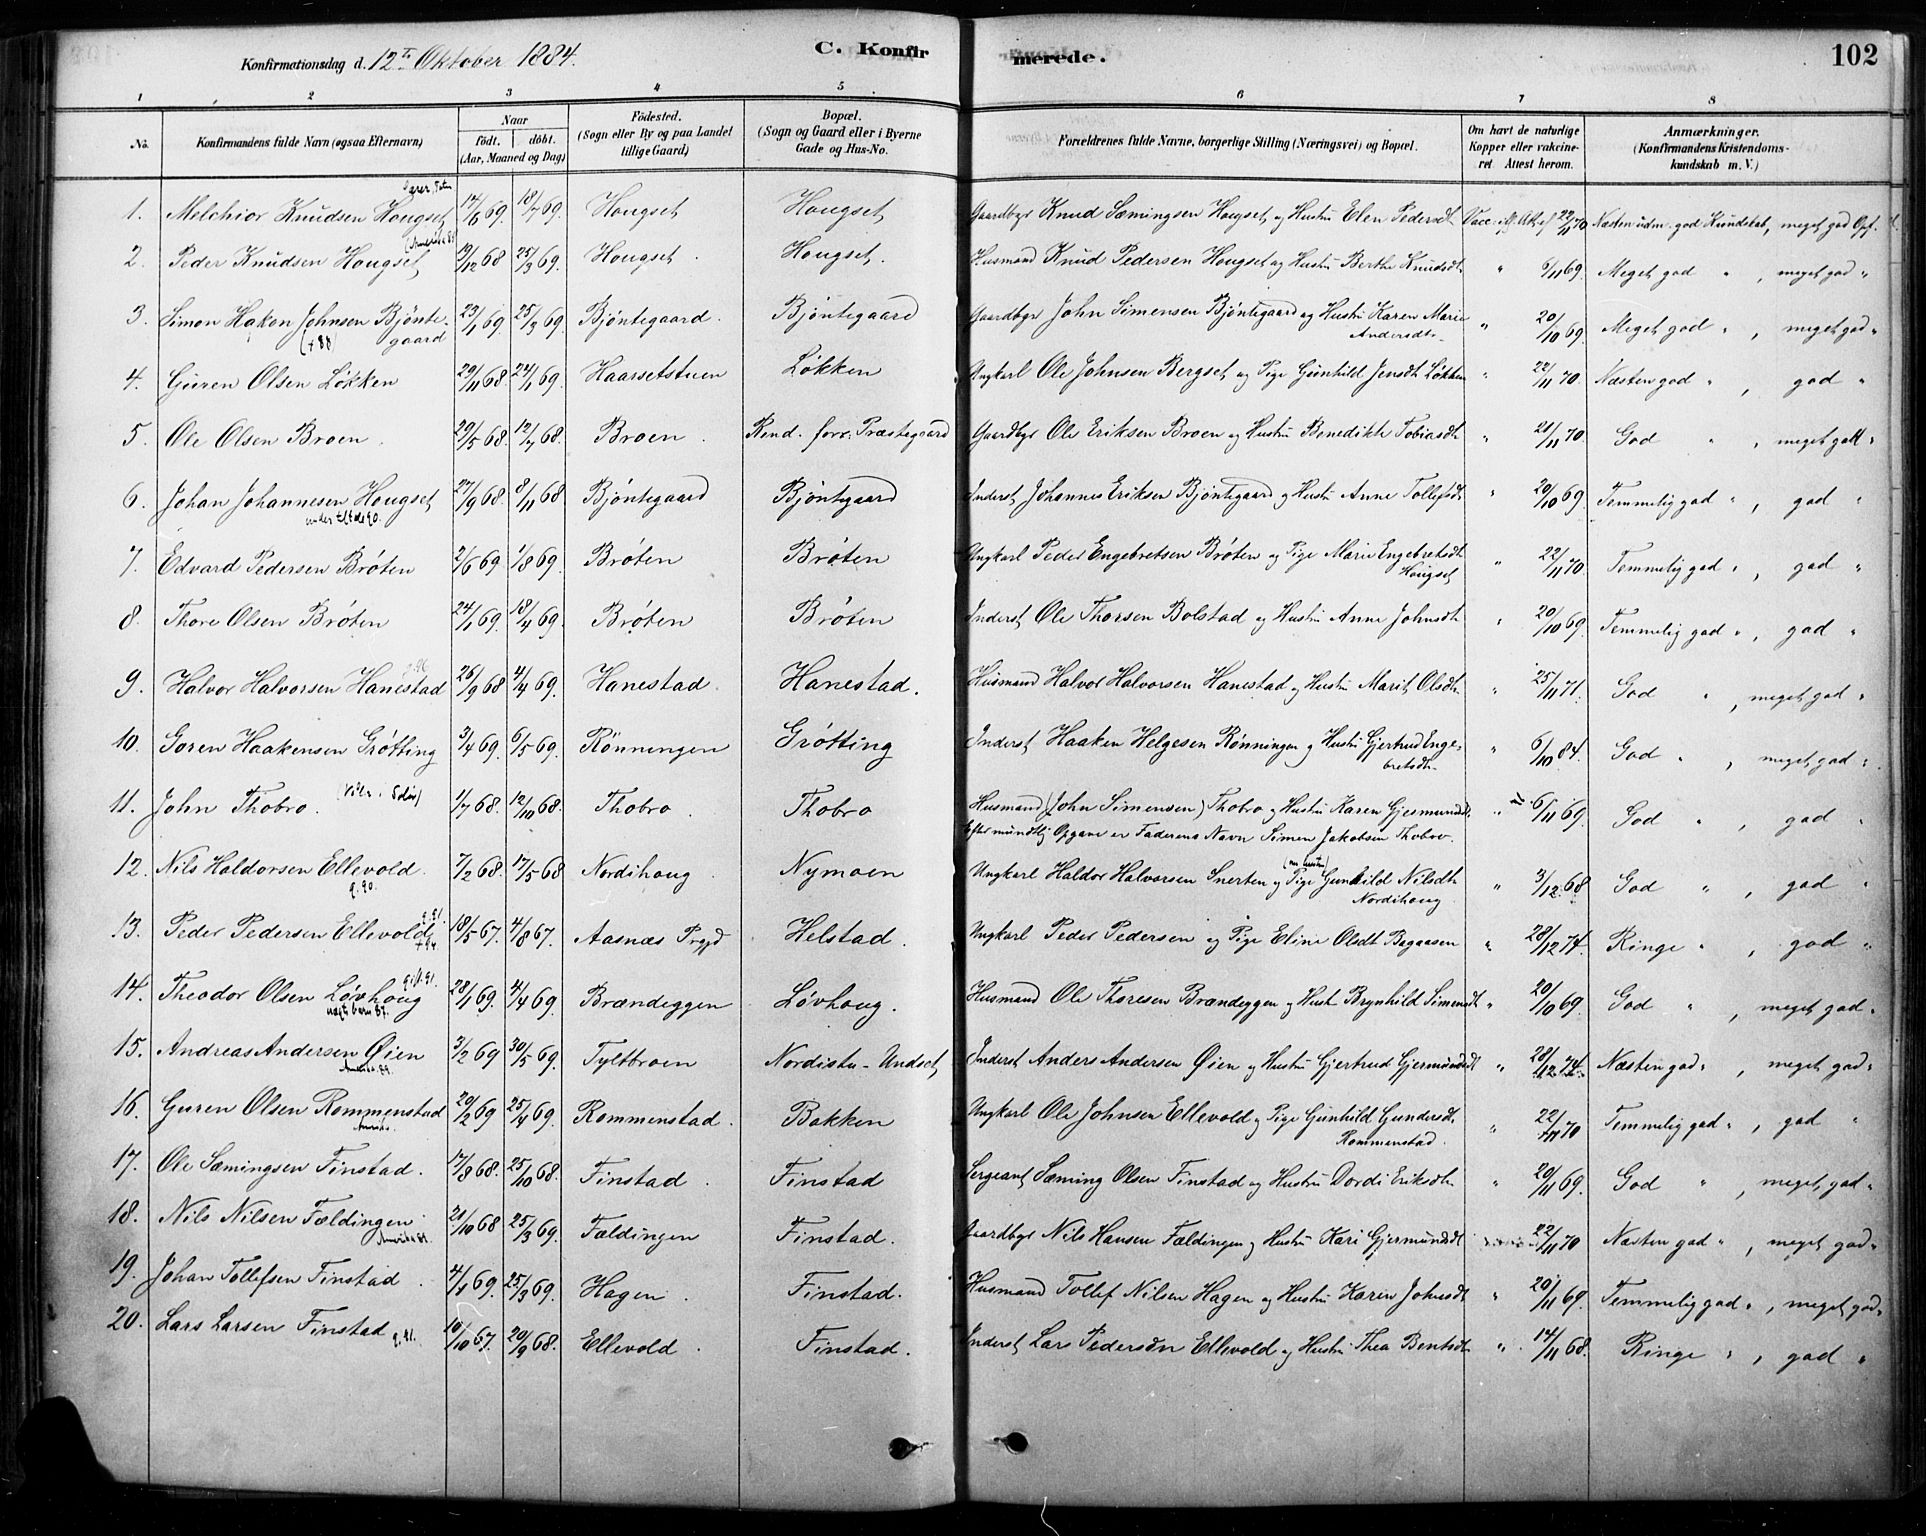 Konfirmationsdag d. 12te Oktober 1884.
C. Konfirmerede.
102
1 2 3 4 5 6 7 8
No. Konfirmandens fulde Navn (ogsaa Efternavn) Naar født. døbt. (Aar, Maaned og Dag) Fødested. (Sogn eller By og paa Landet tillige Gaard) Bopæl. (Sogn og Gaard eller i Byerne Gade og Hus-No. Forældrenes fulde Navne, borgerlige Stilling (Næringsvei) og Bopæl. Om havt de naturlige Kopper eller vakcineret. Attest herom. Anmærkninger. (Konfirmandens Kristendomskundskab m. V.)
1. Melchior Knudsen Hougset 14/6 69. 18/7 69. Hougset Hougset Gaardbgr Knud Sæmingsen Hougset og Hustru Elen Pedersdt Vacc. 22/11 70 Næsten udm. god Kundskab, meget god Opf.
2. Peder Knudsen Hougset (Amerika 8 19/12 68 25/3 69. Hougset. Hougset. Husmand Knud Pedersen Hougset og Hustru Berthe Knudsdt " 6/11 69. Meget god ", meget god "
3. Simon Haken Johnsen Bjöntegaard (+88) 23/1 69. 25/3 69. Bjöntegaard. Bjöntegaard Gaardbgr John Simensen Bjöntegaard og Hustru Karen Marie Andersdtr " 20/10 69. Meget god ", meget god "
4. Guren Olsen Løkken 29/11 68. 24/1 69. Haarsetstuen Løkken Ungkarl Ole Johnsen Bergset og Pige Gunhild Jensdt Løkken " 22/11 70. Næsten god ", god "
5. Ole Olsen Broen. 29/5 68. 12/7 68. Broen. Rend. forr. Præstegaard Gaardbgr Ole Eriksen Broen og Hustru Benedikte Tobiasdt " 21/11 70. God ", meget godt "
6. Johan Johannesen Hougset 27/9 68. 8/11 68. Bjöntegaard Bjöntegaard Inderst Johannes Eriksen Bjöntegaard og Hustru Anne Tollefsdt " 20/10 69. Temmelig god ", god "
7. Edvard Pedersen Brøten 2/6 69. 1/8 69. Brøten Brøten Ungkarl Peder Engebretsen Brøten og Pige Marie Engebretsdt Hougset " 22/11 70. Temmelig god ", god "
8. Thore Olsen Brøten 24/1 69. 18/4 69. Brøten Brøten Inderst Ole Thorsen Bolstad og Hustru Anne Johnsdt " 20/10 69. Temmelig god ", god "
9. Halvor Halvorsen Hanestad 26/9 68 4/4 69. Hanestad. Hanestad. Husmand Halvor Halvorsen Hanestad og Hustru Marit Olsdt " 25/11 71. God ", meget god "
10. Goren Haakensen Grøtting 3/4 69. 6/5 69. Rönningen Grøtting Inderst Haaken Helgesen Rønningen og Hustru Gjertrud Engebretsdt " 6/10 84. God ", meget god "
11. John Thobro. 1/7 68. 12/10 68. Thobro. Thobro Husmand (John Simensen) Thobro og Hustru Karen Gjesmundsdt " 6/11 69. God ", god "
Efter mundtlig Opgave er Faderens Navn Simen Jakobsen Thobro.
12. Nils Haldorsen Ellevold. g. 90. 7/2 68. 17/5 68 Nordihoug. Nymoen Ungkarl Haldor Halvorsen Snerten og Pige Gunhild Nilsdt Nordihoug " 3/12 68 God ", god "
13. Peder Pedersen Ellevold 18/5 67. 4/8 67. Aasnæs Prgjd Helstad. Ungkarl Peder Pedersen og Pige Eline Olsdt Bagaasen " 28/12 74. Ringe ", god "
14. Theodor Olsen Løvhoug gift 91. 28/1 69. 4/4 69. Brændeggen Løvhoug. Husmand Ole Thoresen Brændeggen og Hust Brynhild Simensdt " 20/10 69. God ", meget god "
15. Andreas Andersen Øien Amerika 89. 3/2 69 30/5 69. Tyltbroen Nordistu-Undset Inderst Anders Andersen Øien og Hustru Gjertrud Gjermundsdt " 28/12 74. Næsten god ", meget god "
16. Guren Olsen Rommenstad Amerika. 20/2 69 25/4 69. Rommenstad. Bakken Ungkarl Ole Johnsen Ellevold og Pige Gunhild Gundersdt. Rommenstad. " 22/11 70 Temmelig god ", god "
17. Ole Sæmingsen Finstad. 17/8 68. 25/10 68. Finstad. Finstad Sergeant Sæming Olsen Finstad og Hustru Dordi Eriksdt " 20/11 69. God ", meget god "
18. Nils Nilsen Fældingen. 21/10 68 25/3 69. Fældingen Finstad. Gaardbgr Nils Hansen Fældingen og Hustru Kari Gjermundsdt 22/11 70 Næsten god ", meget god "
19. Johan Tollefsen Finstad. 4/1 69. 25/3 69. Hagen. Finstad. Husmand Tollef Nilsen Hagen og Hustru Karen Johnsdt " 20/11 69. Temmelig god ", meget god "
20. Lars Larsen Finstad 10/10 67. 20/9 68. Ellevold. Finstad. Inderst Lars Pedersøn Ellevold og Hustru Thea Bentsdt " 14/11 68. Ringe ", god "